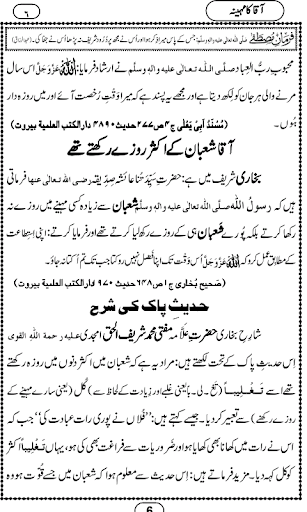 آقا کا مہینہ
٦
فرمانِ مصطفٰے صلی اللہ تعالیٰ علیہ والہٖ وسلم: جس کے پاس میرا ذکر ہوا اور اُس نے مجھ پر دُرُود شریف نہ پڑھا اُس نے جفا کی۔
محبوبِ ربُّ العِباد صلی اللہ تعالیٰ علیہ والہٖ وسلم نے ارشاد فرمایا: اللہ عزوجل اس سال
مرنے والی ہر جان کو لکھ دیتا ہے اور مجھے یہ پسند ہے کہ میرا وَقتِ رُخصت آئے اور میں روزہ دار
ہوں۔ (مُسْنَدُ اَبِیْ یَعْلٰی ج٤ ص٢٧٧ حدیث ٤٨٩٠ دارالکتب العلمیۃ بیروت)
آقا شعبان کے اکثر روزے رکھتے تھے
بخاری شریف میں ہے: حضرتِ سیِّدَتُنا عائشہ صِدّیقہ رضی اللہ تعالیٰ عنہا فرماتی
ہیں کہ رسول اللہ صلی اللہ تعالیٰ علیہ والہٖ وسلم شعبان سے زیادہ کسی مہینے میں روزے نہ
رکھا کرتے بلکہ پورے شعبان ہی کے روزے رکھ لیا کرتے تھے اور فرمایا کرتے: اپنی اِستِطاعت
کے مطابق عمل کرو کہ اللہ عزوجل اُس وَقت تک اپنا فضل نہیں روکتا جب تک تم اُکتا نہ جاؤ۔
(صَحیح بُخاری ج١ ص٦٤٨ حدیث ١٩٧٠ دارالکتب العلمیۃ بیروت)
حدیثِ پاک کی شرح
شارِحِ بخاری حضرتِ علّامہ مفتی محمد شریف الحق امجدی علیہ رحمۃ اللہ القوی
اِس حدیثِ پاک کے تحت لکھتے ہیں: مراد یہ ہے کہ شعبان میں اکثر دنوں میں روزہ رکھتے
تھے اسے تَغْلِیباً (تَغ۔لی۔باً یعنی غلبے اور زیادت کے لحاظ سے) کُل (یعنی سارے مہینے کے
روزے رکھنے) سے تعبیر کردیا۔ جیسے کہتے ہیں: ”فُلاں نے پوری رات عبادت کی“ جب کہ
اس نے رات میں کھانا بھی کھایا ہو اور ضَروریات سے فراغت بھی کی ہو، یہاں تَغْلِیباً اکثر
کو کُل کہہ دیا۔ مزید فرماتے ہیں: اِس حدیث سے معلوم ہوا کہ شعبان میں جسے قُوَّت ہو وہ
6